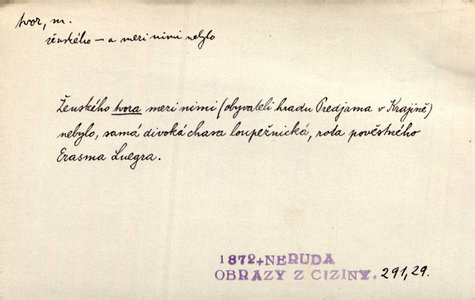 tvor, m.
ženského – a mezi nimi nebylo
Ženského tvora mezi nimi (obyvateli hradu Predjama v Krajině)
nebylo, samá divoká chasa loupežnická, rota pověstného
Erasma Luegra.
1872+NERUDA
OBRAZY Z CIZINY. 291,29.